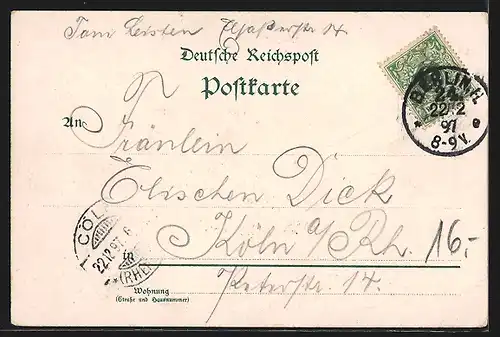 Tom Leisten Elsaßerstr 14
Deutsche Reichspost
Postkarte
BERLIN N
24
22 12
97
8-9 V.
An Fräulein
Elischen Dick
Köln a/Rh.
16,-
Peterstr. 17.
CÖLN
22.12.97
(RHEIN)
Wohnung
(Straße und Hausnummer)